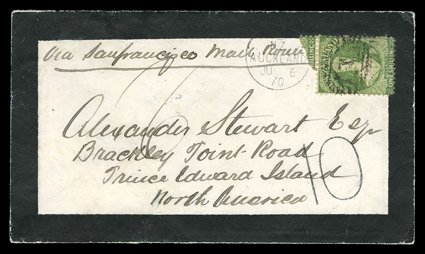 Via Sanfrancisco Mail Route
AUCKLAND
JU 6
70
Alexander Stewart Esq
Brackley Point Road
Prince Edward Island
North America
10